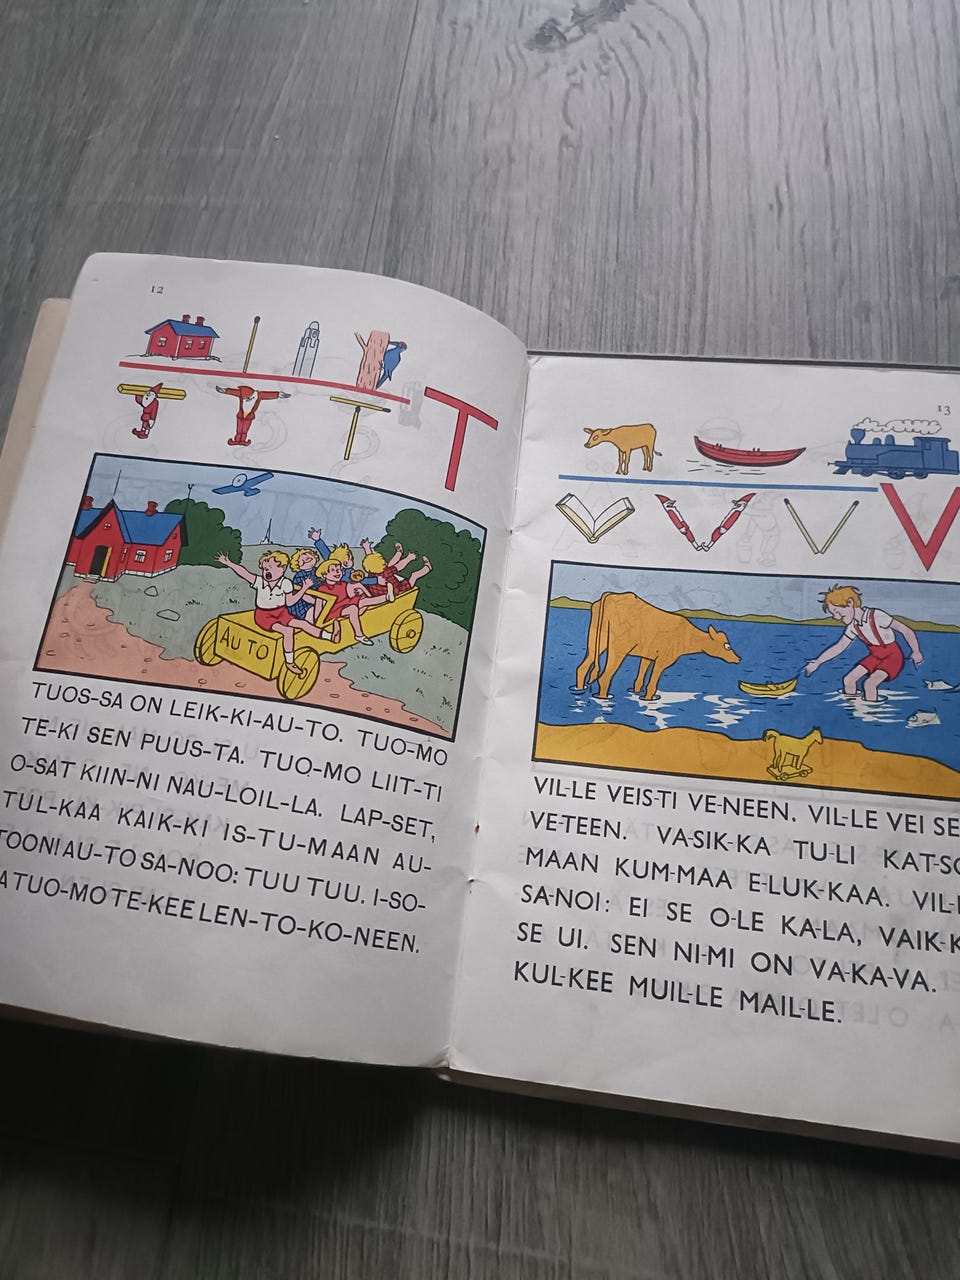 12
T
AU TO
TUOS-SA ON LEIK-KI-AU-TO. TUO-MO
TE-KI SEN PUUS-TA. TUO-MO LIIT-TI
O-SAT KIIN-NI NAU-LOIL-LA. LAP-SET,
TUL-KAA KAIK-KI IS-TU-MAAN AU-
TOON! AU-TO SA-NOO: TUU TUU. I-SO-
A TUO-MO TE-KEE LEN-TO-KO-NEEN.
13
V
VIL-LE VEIS-TI VE-NEEN. VIL-LE VEI SE
VE-TEEN. VA-SIK-KA TU-LI KAT-SO
MAAN KUM-MAA E-LUK-KAA. VIL-L
SA-NOI: EI SE O-LE KA-LA, VAIK-K
SE UI. SEN NI-MI ON VA-KA-VA.
KUL-KEE MUIL-LE MAIL-LE.